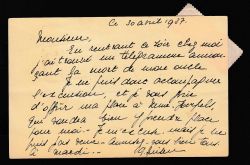 Ce 30 avril 1937.
Monsieur,
En rentrant ce soir chez moi
j'ai trouvé un télégramme annon-
çant la mort de mon oncle.
Je ne puis donc accompagner
l'excursion, et je vous prie
d'offrir ma place à
qui voudra bien prendre place
pour moi. Je m'excuse mais je ne
puis pas venir
à mardi.